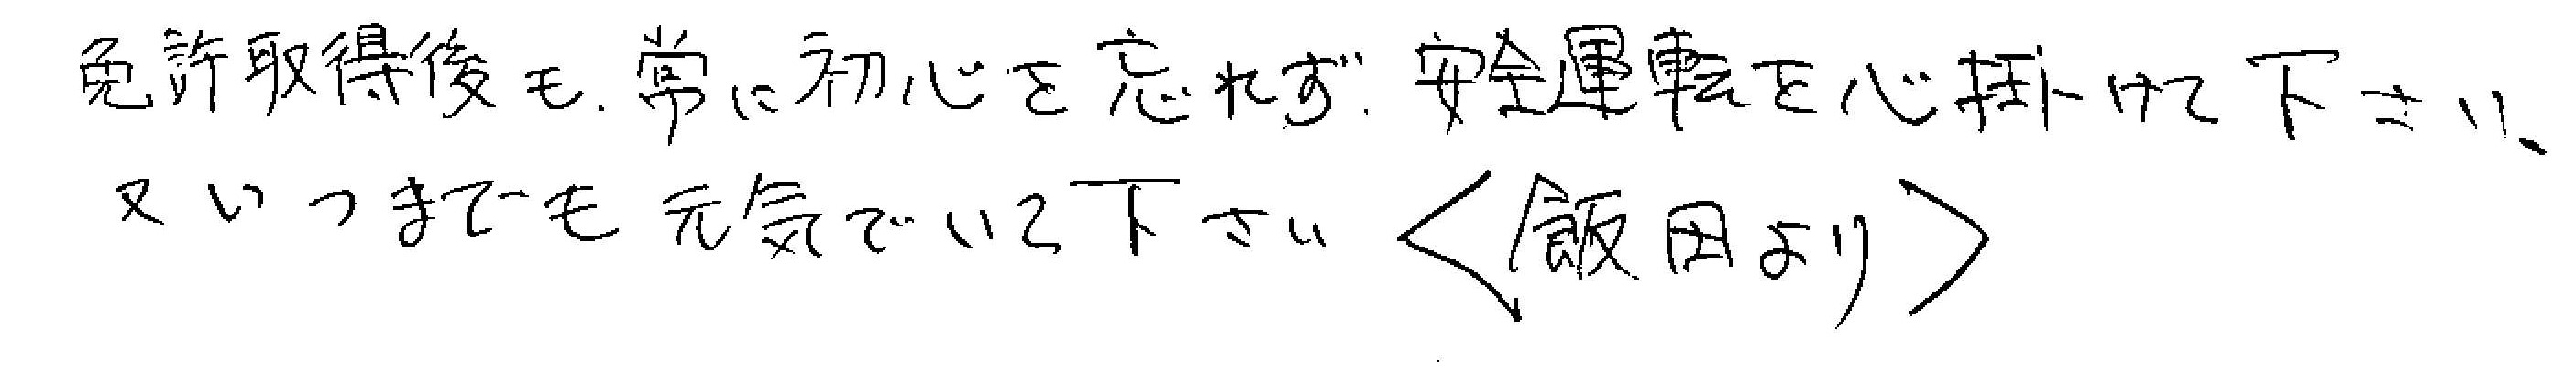 免許取得後も、常に初心を忘れず、安全運転を心掛けて下さい、
又いつまでも元気でいて下さい <飯田より>